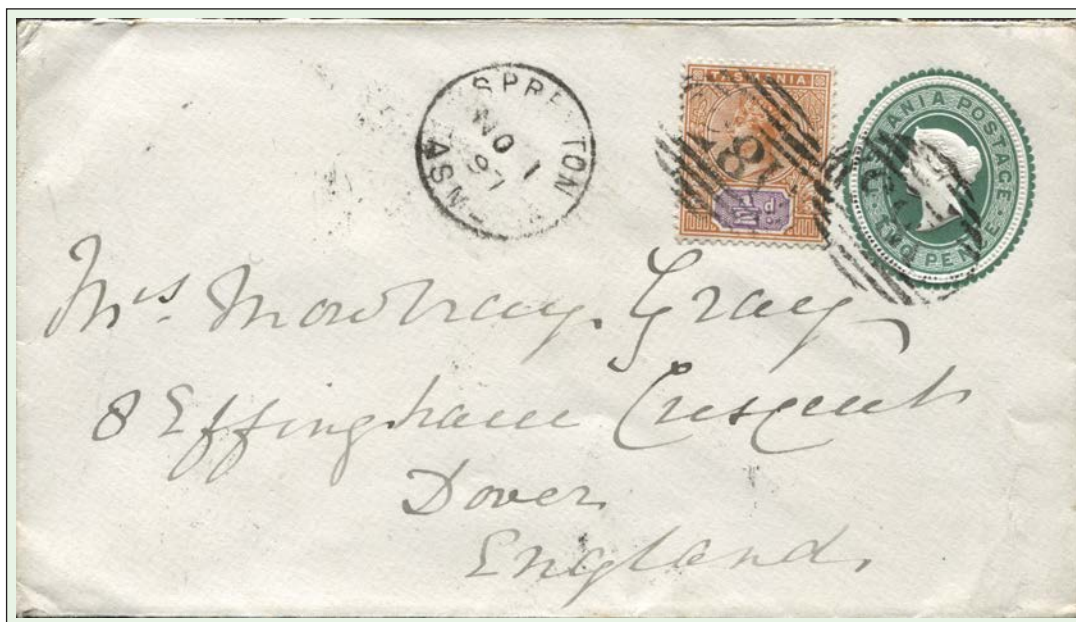 SPRE TON
NO 1
97
TASM
TASMANIA
½d
TASMANIA POSTAGE
TWO PENCE
Mrs. Mowbray Gray
8 Effingham Crescent
Dover
England